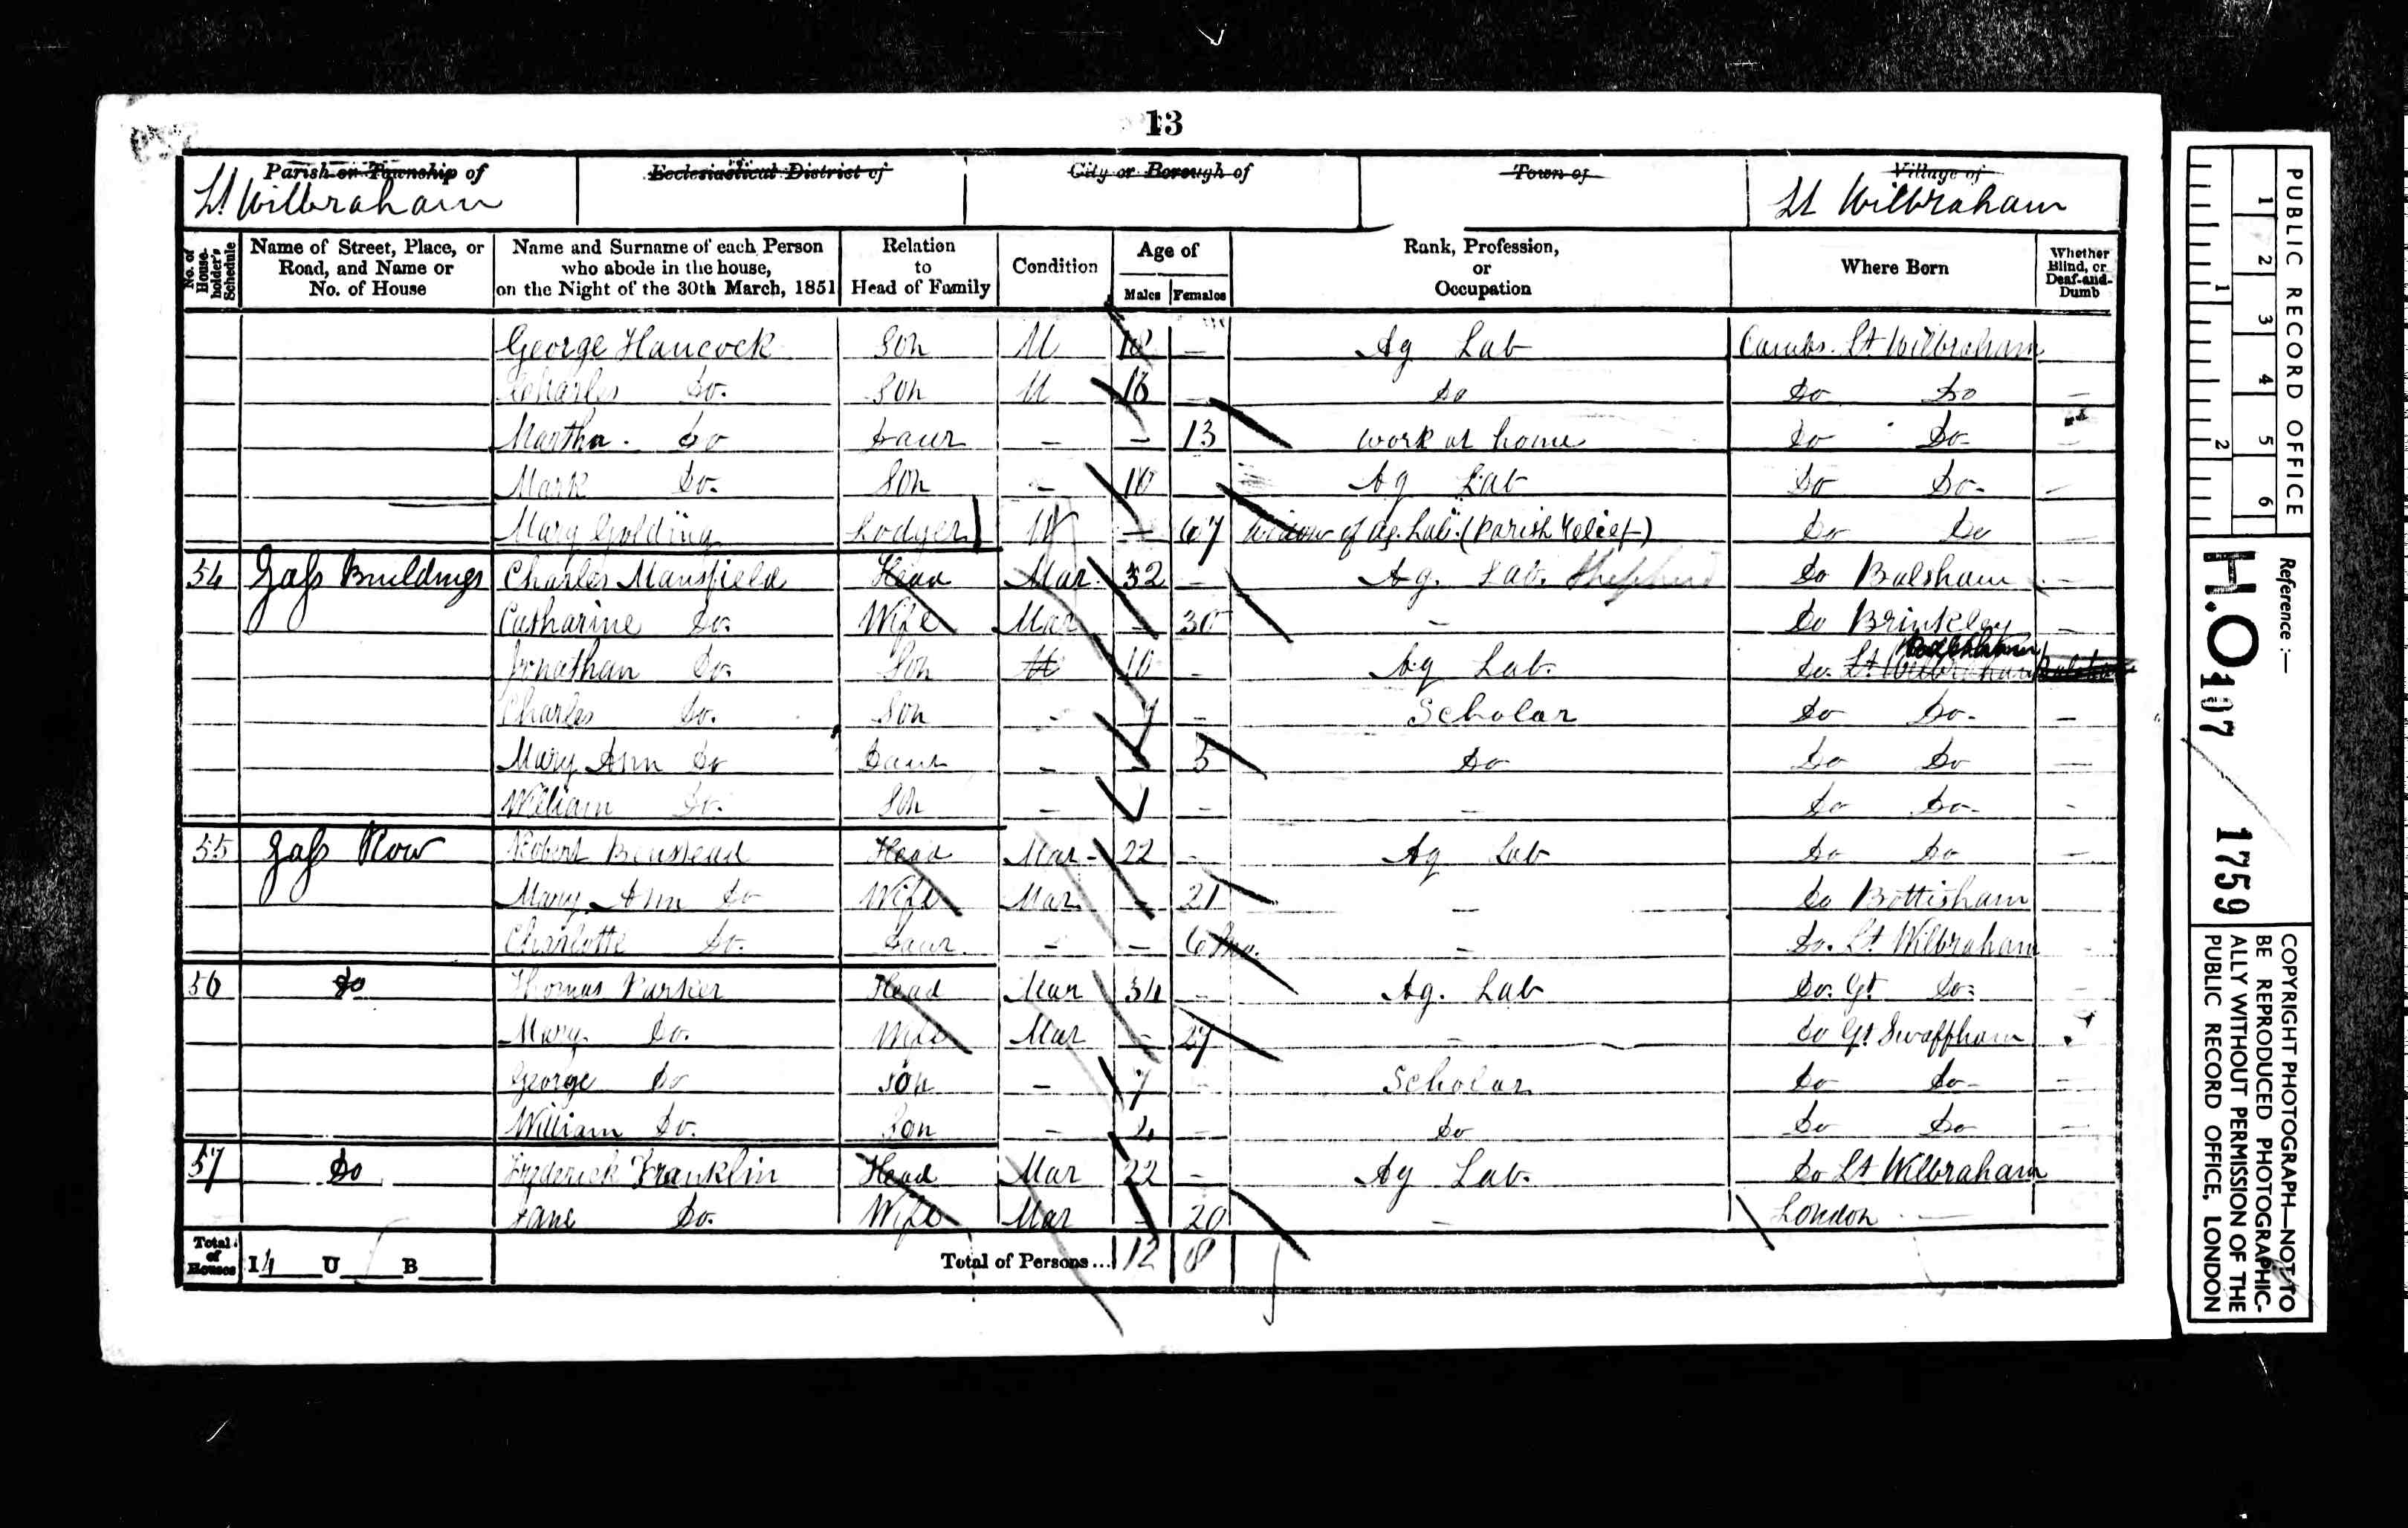 13
Parish or Township of Ecclesiastical District of City or Borough of Town of Village of
Lt Wilbraham Lt Wilbraham
No. of Householder's Schedule
Name of Street, Place, or Road, and Name or No. of House
Name and Surname of each Person who abode in the house, on the Night of the 30th March, 1851
Relation to Head of Family
Condition
Age of
Males Females
Rank, Profession, or Occupation
Where Born
Whether Blind, or Deaf-and-Dumb
George Hancock Son U 18 – Ag Lab Cambs. Lt Wilbraham
Charles Do. Son U 16 – Do Do Do –
Martha. Do Daur – – 13 work at home Do Do –
Mark Do. Son – 10 Ag Lab Do Do –
Mary Golding Lodger W – 67 Widow of Ag. Lab. (Parish Relief) Do Do
54 Gafs Buildings Charles Mansfield Head Mar. 32 – Ag. Lab. Shepherd Do Balsham –
Catharine Do. Wife Mar – 30 – Do Brinkley –
Jonathan Do. Son U 10 – Ag Lab. Do. Lt Wilbraham Balsham
Charles Do. Son – 7 – Scholar Do Do –
Mary Ann Do Daur – – 5 Do Do Do –
William Do. Son – 1 – – Do Do –
55 Gafs Row Robert Benstead Head Mar 22 – Ag Lab Do Do –
Mary Ann Do Wife Mar – 21 – Do Bottisham
Charlotte Do. Daur – – 6 Mo. – Do. Lt Wilbraham
56 Do Thomas Parker Head Mar 34 – Ag. Lab Do. Gt Do.
Mary Do. Wife Mar – 27 – Do Gt Swaffham
George Do Son – 7 – Scholar Do Do –
William Do. Son – – Do Do Do –
57 Do Frederick Franklin Head Mar 22 – Ag Lab. Do Lt Wilbraham
Jane Do. Wife Mar – 20 – London –
Total of Houses I 4 U B Total of Persons... 12 8
PUBLIC RECORD OFFICE
1 2 3 4 5 6
1 2
Reference :—
H.O 107 / 1759
COPYRIGHT PHOTOGRAPH—NOT TO
BE REPRODUCED PHOTOGRAPHIC-
ALLY WITHOUT PERMISSION OF THE
PUBLIC RECORD OFFICE, LONDON